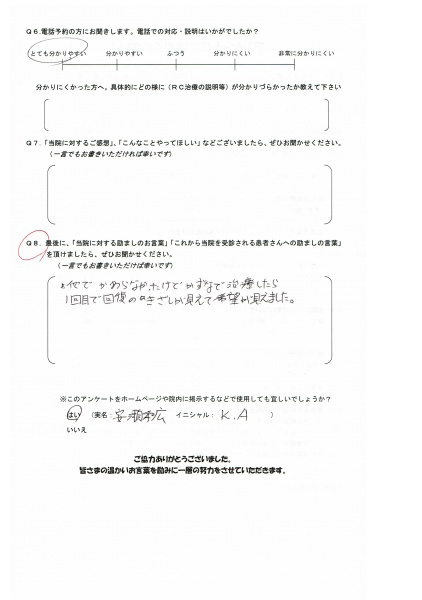 Ｑ６.電話予約の方にお聞きします。電話での対応・説明はいかがでしたか？
とても分かりやすい　分かりやすい　ふつう　分かりにくい　非常に分かりにくい
分かりにくかった方へ。具体的にどの様に（ＲＣ治療の説明等）が分かりづらかったか教えて下さい
Ｑ７.「当院に対するご感想」、「こんなことやってほしい」などございましたら、ぜひお聞かせください。
（一言でもお書きいただければ幸いです）
Ｑ８.最後に、「当院に対する励ましのお言葉」「これから当院を受診される患者さんへの励ましの言葉」
を頂けましたら、ぜひお聞かせください。
（一言でもお書きいただけば幸いです）
他でかわらなかったけでかずなで治療したら
1回目で回復のきざしが見えて希望が見えました。
※このアンケートをホームページや院内に掲示するなどで使用しても宜しいでしょうか？
はい （実名：　イニシャル： K.A ）
いいえ
ご協力ありがとうございました。
皆さまの温かいお言葉を励みに一層の努力をさせていただきます。